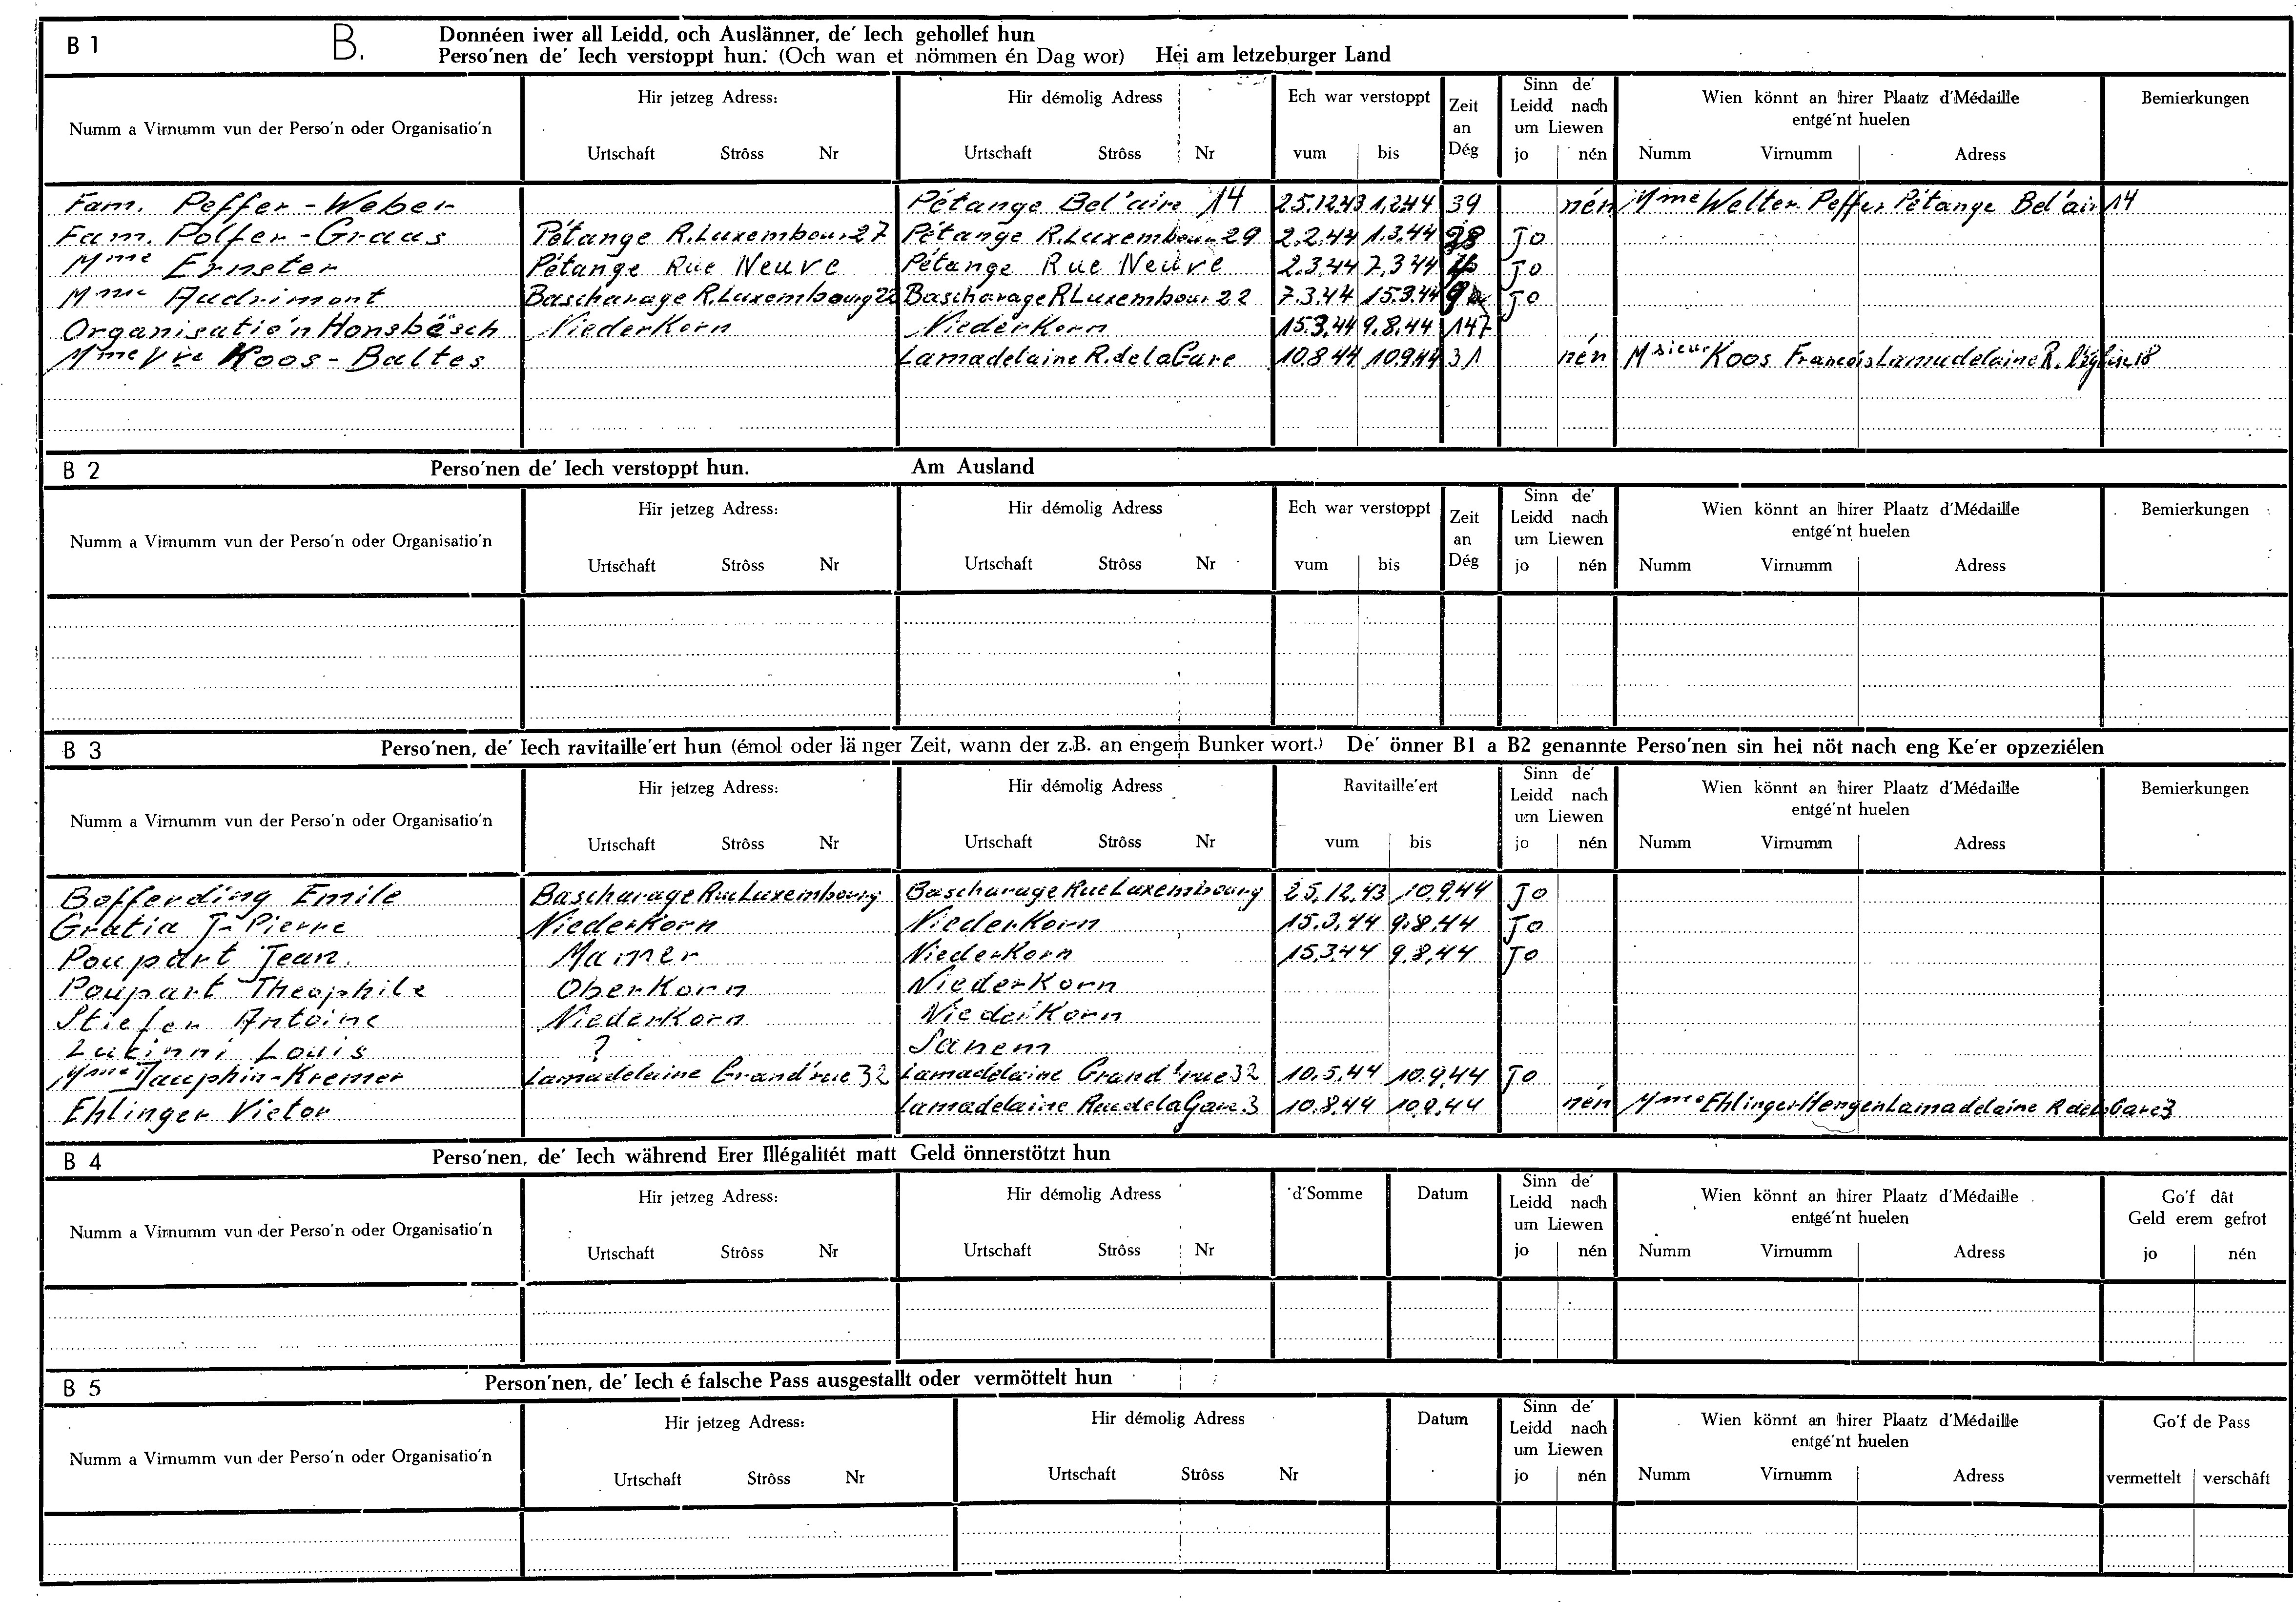 B 1 B. Donnéen iwer all Leidd, och Auslänner, de' Iech gehollef hun
Perso'nen de' Iech verstoppt hun. (Och wan et nömmen én Dag wor) Hei am letzeburger Land
Numm a Virnumm vun der Perso'n oder Organisatio'n Hir jetzeg Adress: Urtschaft Strôss Nr Hir démolig Adress Urtschaft Strôss Nr Ech war verstoppt vum bis Zeit an Dég Sinn de' Leidd nach um Liewen jo nén Wien könnt an hirer Plaatz d'Médaille entgé'nt huelen Numm Virnumm Adress Bemierkungen
Fam. Peffer-Weber Pétange Bel'aire 14 25.12.43 1.2.44 39 nén Mme Welter Peffer Pétange Bel'air 14
Fam. Polfer-Graas Pétange R. Luxembour 27 Pétange R. Luxembour 29 2.2.44 1.3.44 28 Jo
Mme Ernster Pétange Rue Neuve Pétange Rue Neuve 2.3.44 7.3 44 Jo
Mme Audrimont Bascharage R. Luxembourg 22 Bascharage R Luxembour 22 7.3.44 15.3.44 9 Jo
Organisatio'n Honsbësch Niederkorn Niederkorn 15.3.44 9.8.44 147
Mme Vve Koos-Baltes Lamadelaine R. de la Gare 10.8 44 10.9.44 31 nén Msieur Koos François Lamadelaine R. l'église 18
B 2 Perso'nen de' Iech verstoppt hun. Am Ausland
Numm a Virnumm vun der Perso'n oder Organisatio'n Hir jetzeg Adress: Urtschaft Strôss Nr Hir démolig Adress Urtschaft Strôss Nr Ech war verstoppt vum bis Zeit an Dég Sinn de' Leidd nach um Liewen jo nén Wien könnt an hirer Plaatz d'Médaille entgé'nt huelen Numm Virnumm Adress Bemierkungen
B 3 Perso'nen, de' Iech ravitaille'ert hun (émol oder länger Zeit, wann der z.B. an engem Bunker wort.) De' önner B1 a B2 genannte Perso'nen sin hei nöt nach eng Ke'er opzeziélen
Numm a Virnumm vun der Perso'n oder Organisatio'n Hir jetzeg Adress: Urtschaft Strôss Nr Hir démolig Adress Urtschaft Strôss Nr Ravitaille'ert vum bis Sinn de' Leidd nach um Liewen jo nén Wien könnt an hirer Plaatz d'Médaille entgé'nt huelen Numm Virnumm Adress Bemierkungen
Bofferding Emile Bascharage Rue Luxembourg Bascharage Rue Luxembourg 25.12.43 10.9.44 Jo
Gratia J-Pierre Niederkorn Niederkorn 15.3.44 9.8.44 Jo
Poupart Jean. Mamer Niederkorn 15.3.44 9.8.44 Jo
Poupart Theophile Oberkorn Niederkorn
Stiefer Antoine Niederkorn Niederkorn
Lukinni Louis ? Sanem
Mme Dauphin-Kremer Lamadelaine Grand'rue 32 Lamadelaine Grand'rue 32 10.5.44 10.9.44 Jo
Ehlinger Victor Lamadelaine Rue de la Gare 3 10.8.44 10.9.44 nén Mme Ehlinger Hengen Lamadelaine R de la Gare 3
B 4 Perso'nen, de' Iech während Erer Illégalitét matt Geld önnerstötzt hun
Numm a Virnumm vun der Perso'n oder Organisatio'n Hir jetzeg Adress: Urtschaft Strôss Nr Hir démolig Adress Urtschaft Strôss Nr d'Somme Datum Sinn de' Leidd nach um Liewen jo nén Wien könnt an hirer Plaatz d'Médaille entgé'nt huelen Numm Virnumm Adress Go'f dât Geld erem gefrot jo nén
B 5 Person'nen, de' Iech é falsche Pass ausgestallt oder vermöttelt hun
Numm a Virnumm vun der Perso'n oder Organisatio'n Hir jetzeg Adress: Urtschaft Strôss Nr Hir démolig Adress Urtschaft Strôss Nr Datum Sinn de' Leidd nach um Liewen jo nén Wien könnt an hirer Plaatz d'Médaille entgé'nt huelen Numm Virnumm Adress Go'f de Pass vermettelt verschâft